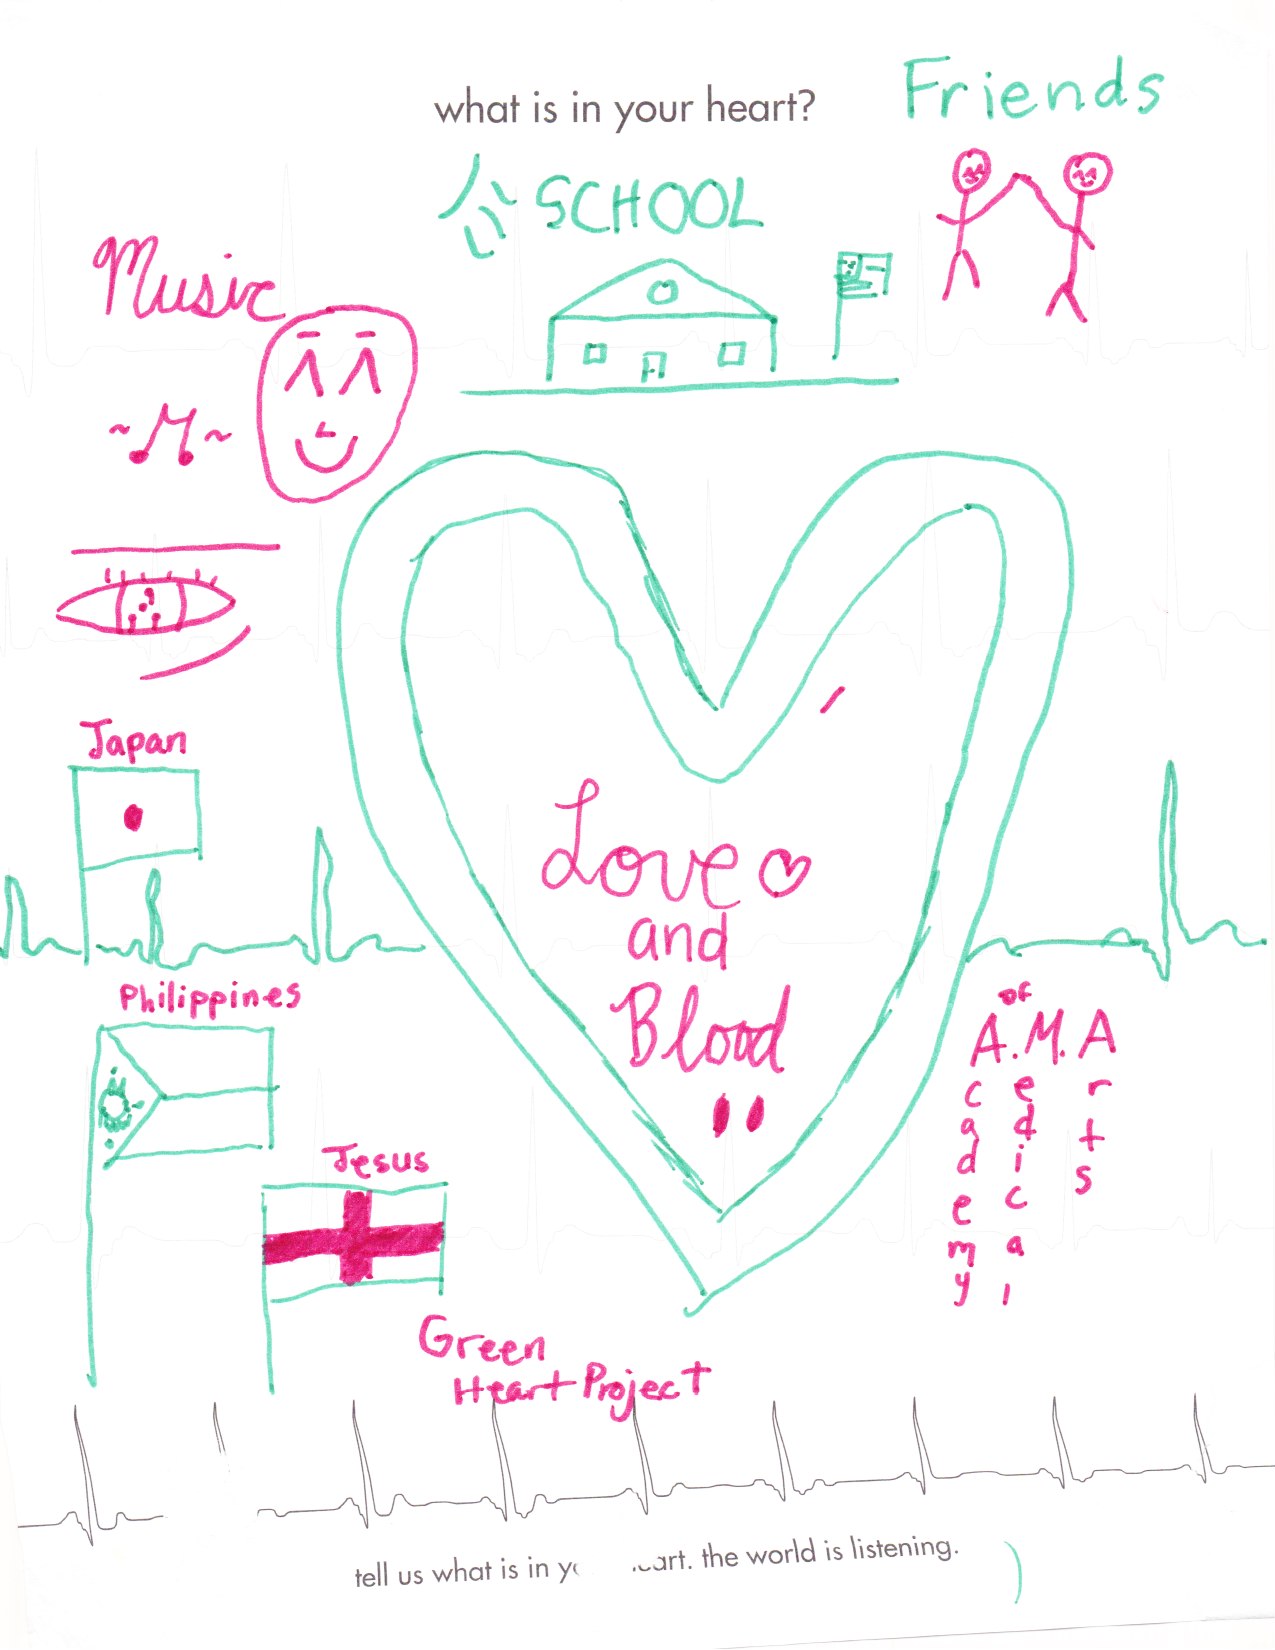 what is in your heart?
Friends
SCHOOL
Music
Japan
Love
and
Blood
Philippines
of
A.M.A
Academy
Medical
Arts
Jesus
Green
Heart Project
tell us what is in art. the world is listening.